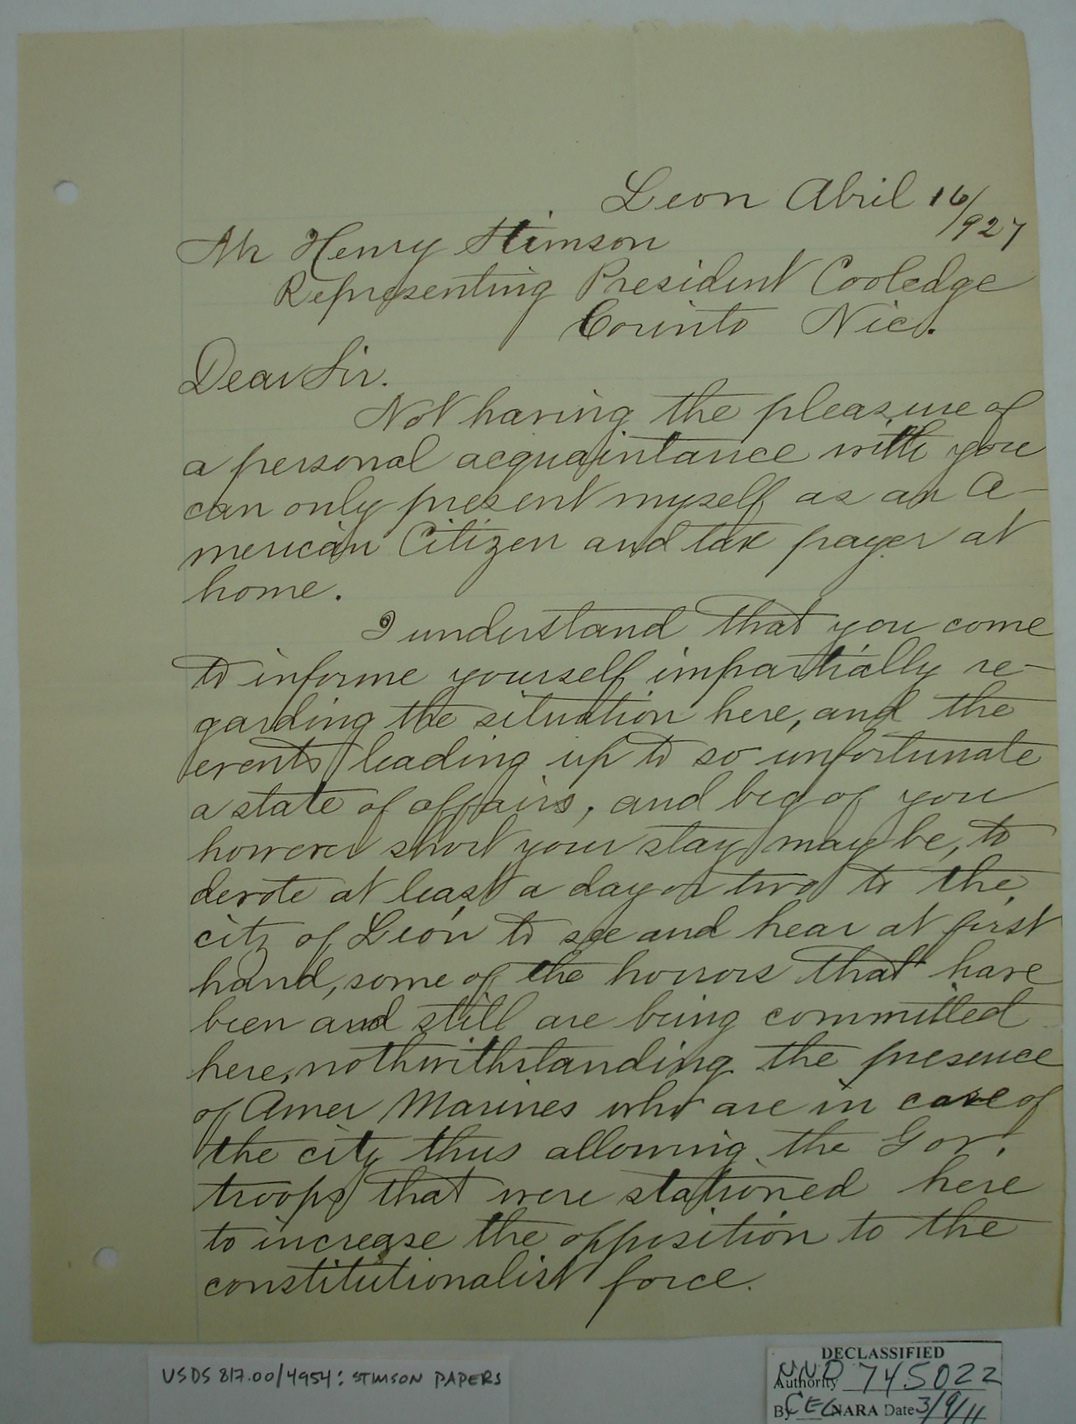 Leon Abril 16/927
Mr Henry Stimson
Representing President Cooledge
Corinto Nic.
Dear Sir.
Not having the pleasure of
a personal acquaintance with you
can only present myself as an A-
merican Citizen and tax payer at
home.
I understand that you come
to informe yourself impartially re-
garding the situation here, and the
events leading up to so unfortunate
a state of affairs, and beg of you
however short your stay may be, to
devote at least a day or two to the
city of León to see and hear at first
hand, some of the horrors that have
been and still are being committed
here, nothwithstanding the presence
of Amer Marines who are in care of
the city thus allowing the Gov.
troops that were stationed here
to increase the opposition to the
constitutionalist force.
USDS 817.00/4954: STIMSON PAPERS
DECLASSIFIED
Authority NND 745022
By CEG NARA Date 3/9/11